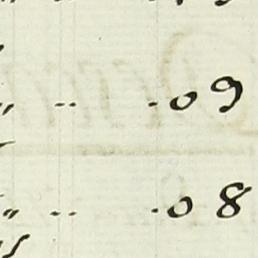 " -- . 0 9
" -- . 0 8